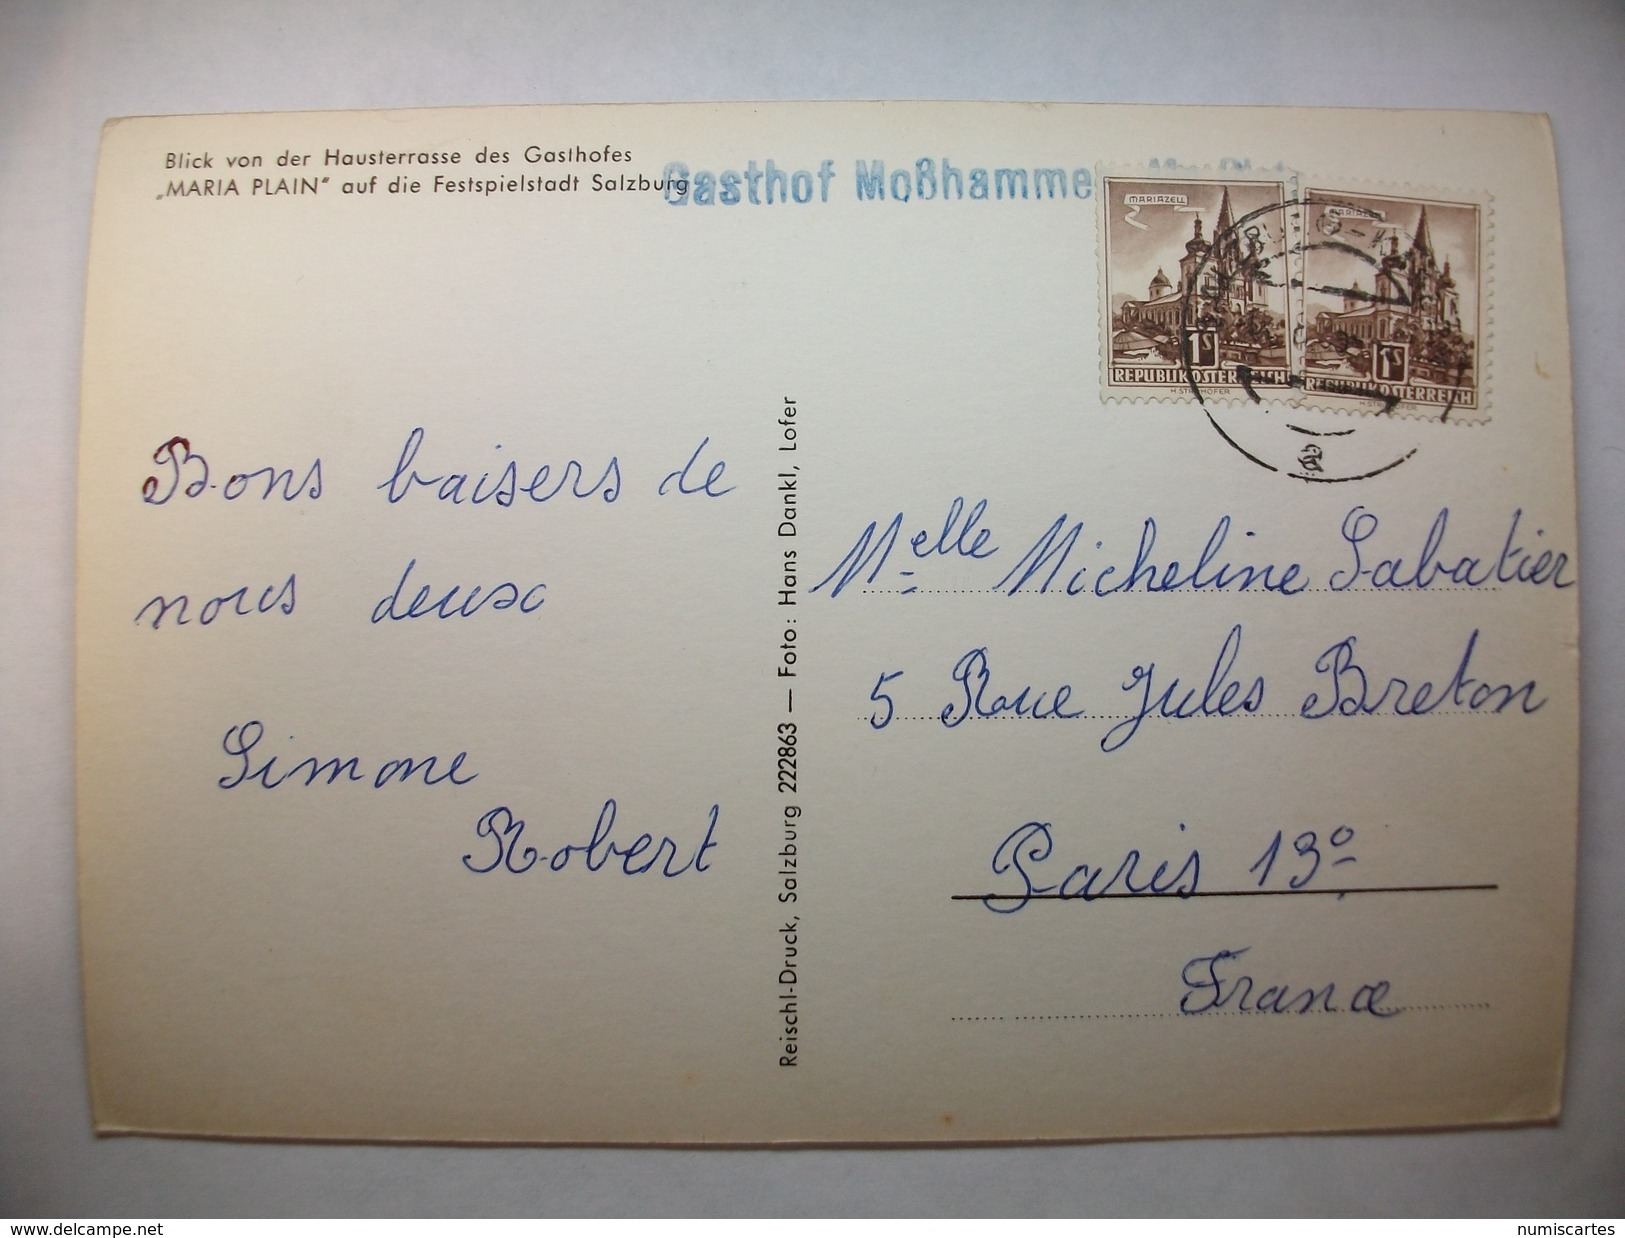 Blick von der Hausterrasse des Gasthofes
„MARIA PLAIN“ auf die Festspielstadt Salzburg
Gasthof Moßhammer
MARIAZELL
1S
REPUBLIK ÖSTERREICH
MARIAZELL
1S
REPUBLIK ÖSTERREICH
Bons baisers de
nous deux
Simone
Robert
Reischl-Druck, Salzburg 222863 — Foto: Hans Dankl, Lofer
Melle Micheline Sabatier
5 Rue Jules Breton
Paris 13º
France
www.delcampe.net
numiscartes